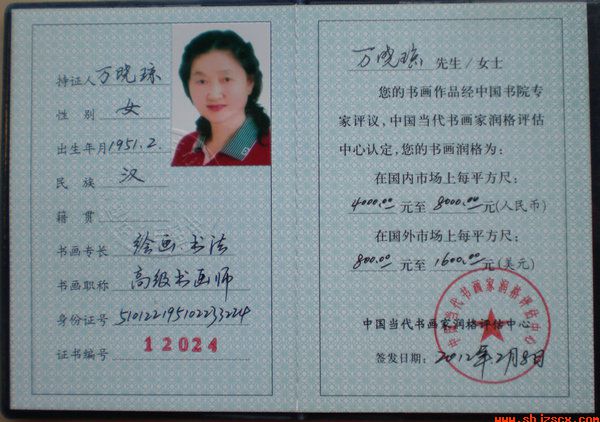 持证人 万晓琼
性 别 女
出生年月 1951.2.
民 族 汉
籍 贯
书画专长 绘画 书法
书画职称 高级书画师
身份证号 510122195102233224
证书编号 12024
万晓琼 先生/女士
您的书画作品经中国书院专
家评议,中国当代书画家润格评估
中心认定,您的书画润格为:
在国内市场上每平方尺:
4000.00 元至 8000.00 元(人民币)
在国外市场上每平方尺:
800.00 元至 1600.00 元(美元)
中国当代书画家润格评估中心
中国当代书画家润格评估中心
签发日期: 2012年2月8日
www.shjzscx.com